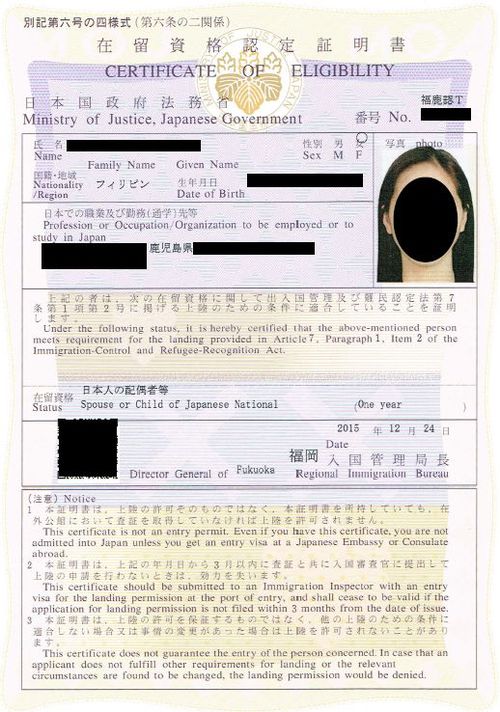 別記第六号の四様式(第六条の二関係)
在留資格認定証明書
CERTIFICATE OF ELIGIBILITY
日本国政府法務省
福鹿認T
Ministry of Justice, Japanese Government
番号 No.
氏名
Name
Family Name Given Name
性別 男 女
Sex M F
写真 photo
国籍・地域
Nationality
/Region
フィリピン
生年月日
Date of Birth
日本での職業及び勤務(通学)先等
Profession or Occupation/Organization to be employed or to
study in Japan
鹿児島県
上記の者は、次の在留資格に関して出入国管理及び難民認定法第7
条第1項第2号に掲げる上陸のための条件に適合していることを証明
します。
Under the following status, it is hereby certified that the above-mentioned person
meets requirement for the landing provided in Article 7, Paragraph 1, Item 2 of the
Immigration-Control and Refugee-Recognition Act.
在留資格
Status
日本人の配偶者等
Spouse or Child of Japanese National
(One year )
2015 年 12 月 24 日
Date
福岡 入国管理局長
Director General of Fukuoka Regional Immigration Bureau
(注意) Notice
1 本証明書は、上陸の許可そのものではなく、本証明書を所持していても、在
外公館において査証を取得していなければ上陸を許可されません。
This certificate is not an entry permit. Even if you have this certificate, you are not
admitted into Japan unless you get an entry visa at a Japanese Embassy or Consulate
abroad.
2 本証明書は、上記の年月日から3月以内に査証と共に入国審査官に提出して
上陸の申請を行わないときは、効力を失います。
This certificate should be submitted to an Immigration Inspector with an entry
visa for the landing permission at the port of entry, and shall cease to be valid if the
application for landing permission is not filed within 3 months from the date of issue.
3 本証明書は、上陸の許可を保証するものではなく、他の上陸のための条件に
適合しない場合又は事情の変更があった場合は上陸を許可されないことがあり
ます。
This certificate does not guarantee the entry of the person concerned. In case that an
applicant does not fulfill other requirements for landing or the relevant
circumstances are found to be changed, the landing permission would be denied.